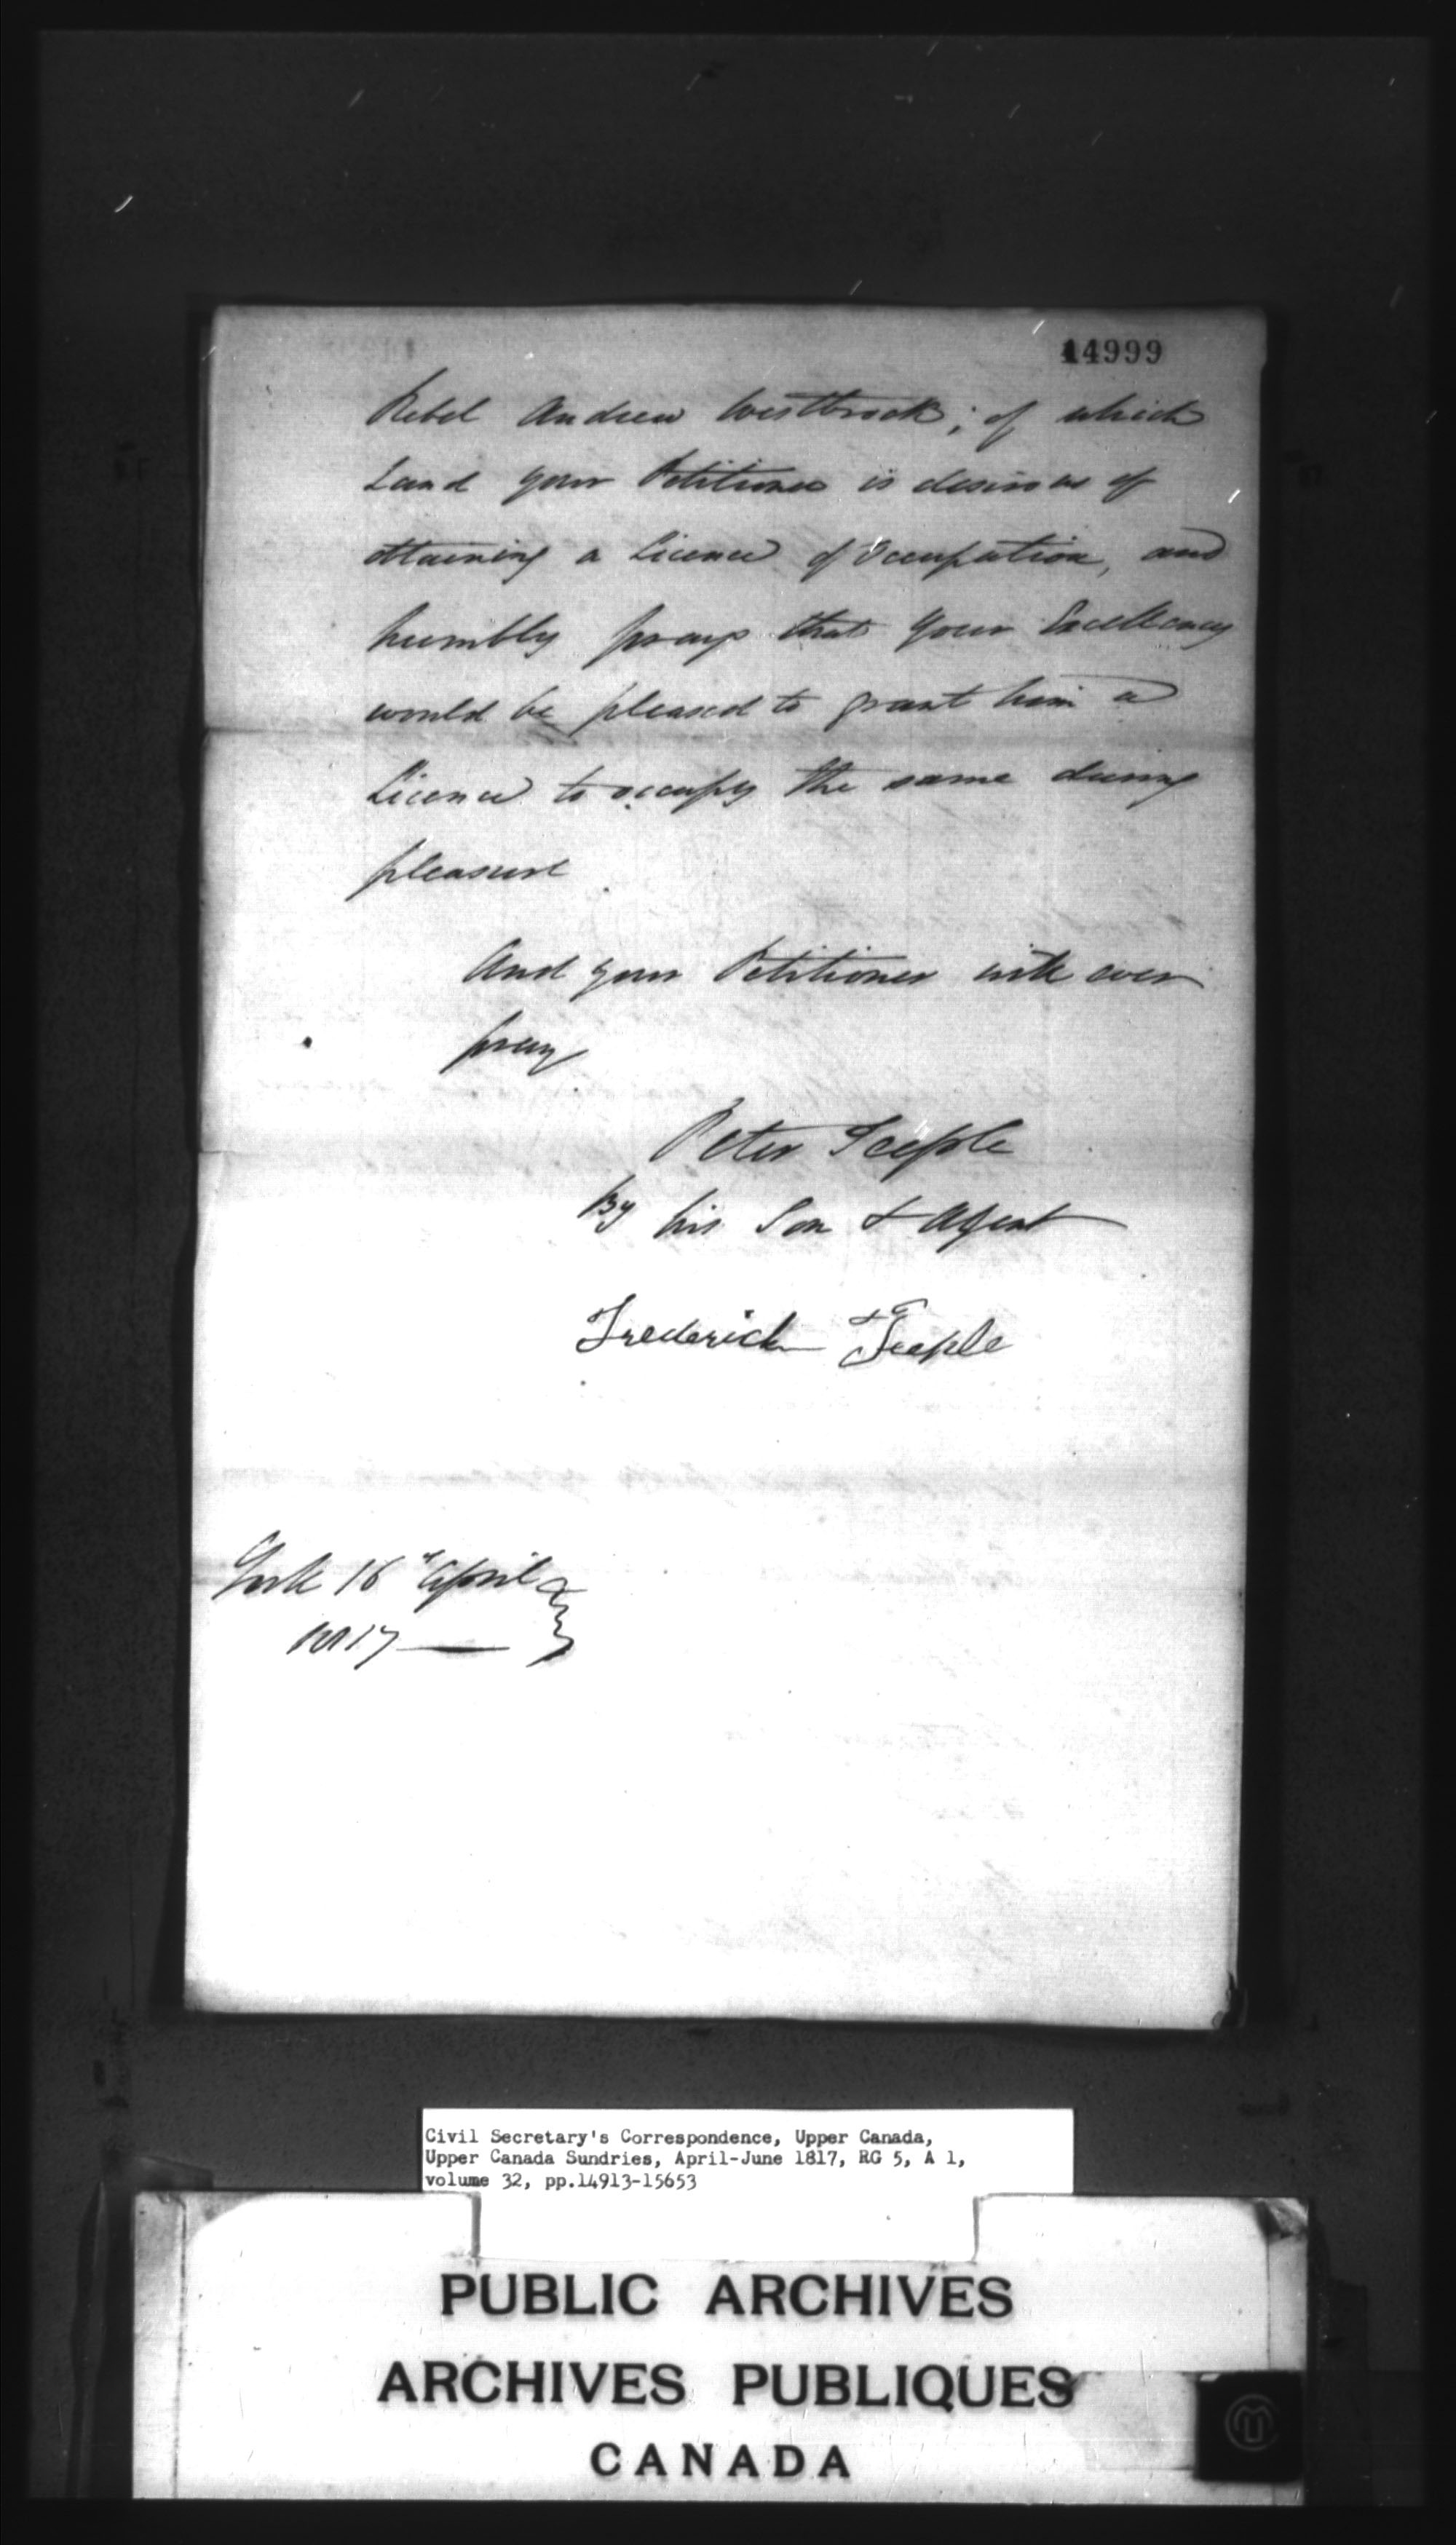 14999
Rebel Andrew Westbrook; of which
Land your Petitioner is desirous of
obtaining a Licence of Occupation, and
humbly prays that Your Excellency
would be pleased to grant him a
Licence to occupy the same during
pleasure
And your Petitioner will ever
pray
Peter Teeple
By his Son & Agent
Frederick Teeple
York 16th April
1817
Civil Secretary's Correspondence, Upper Canada,
Upper Canada Sundries, April-June 1817, RG 5, A 1,
volume 32, pp.14913-15653
PUBLIC ARCHIVES
ARCHIVES PUBLIQUES
CANADA